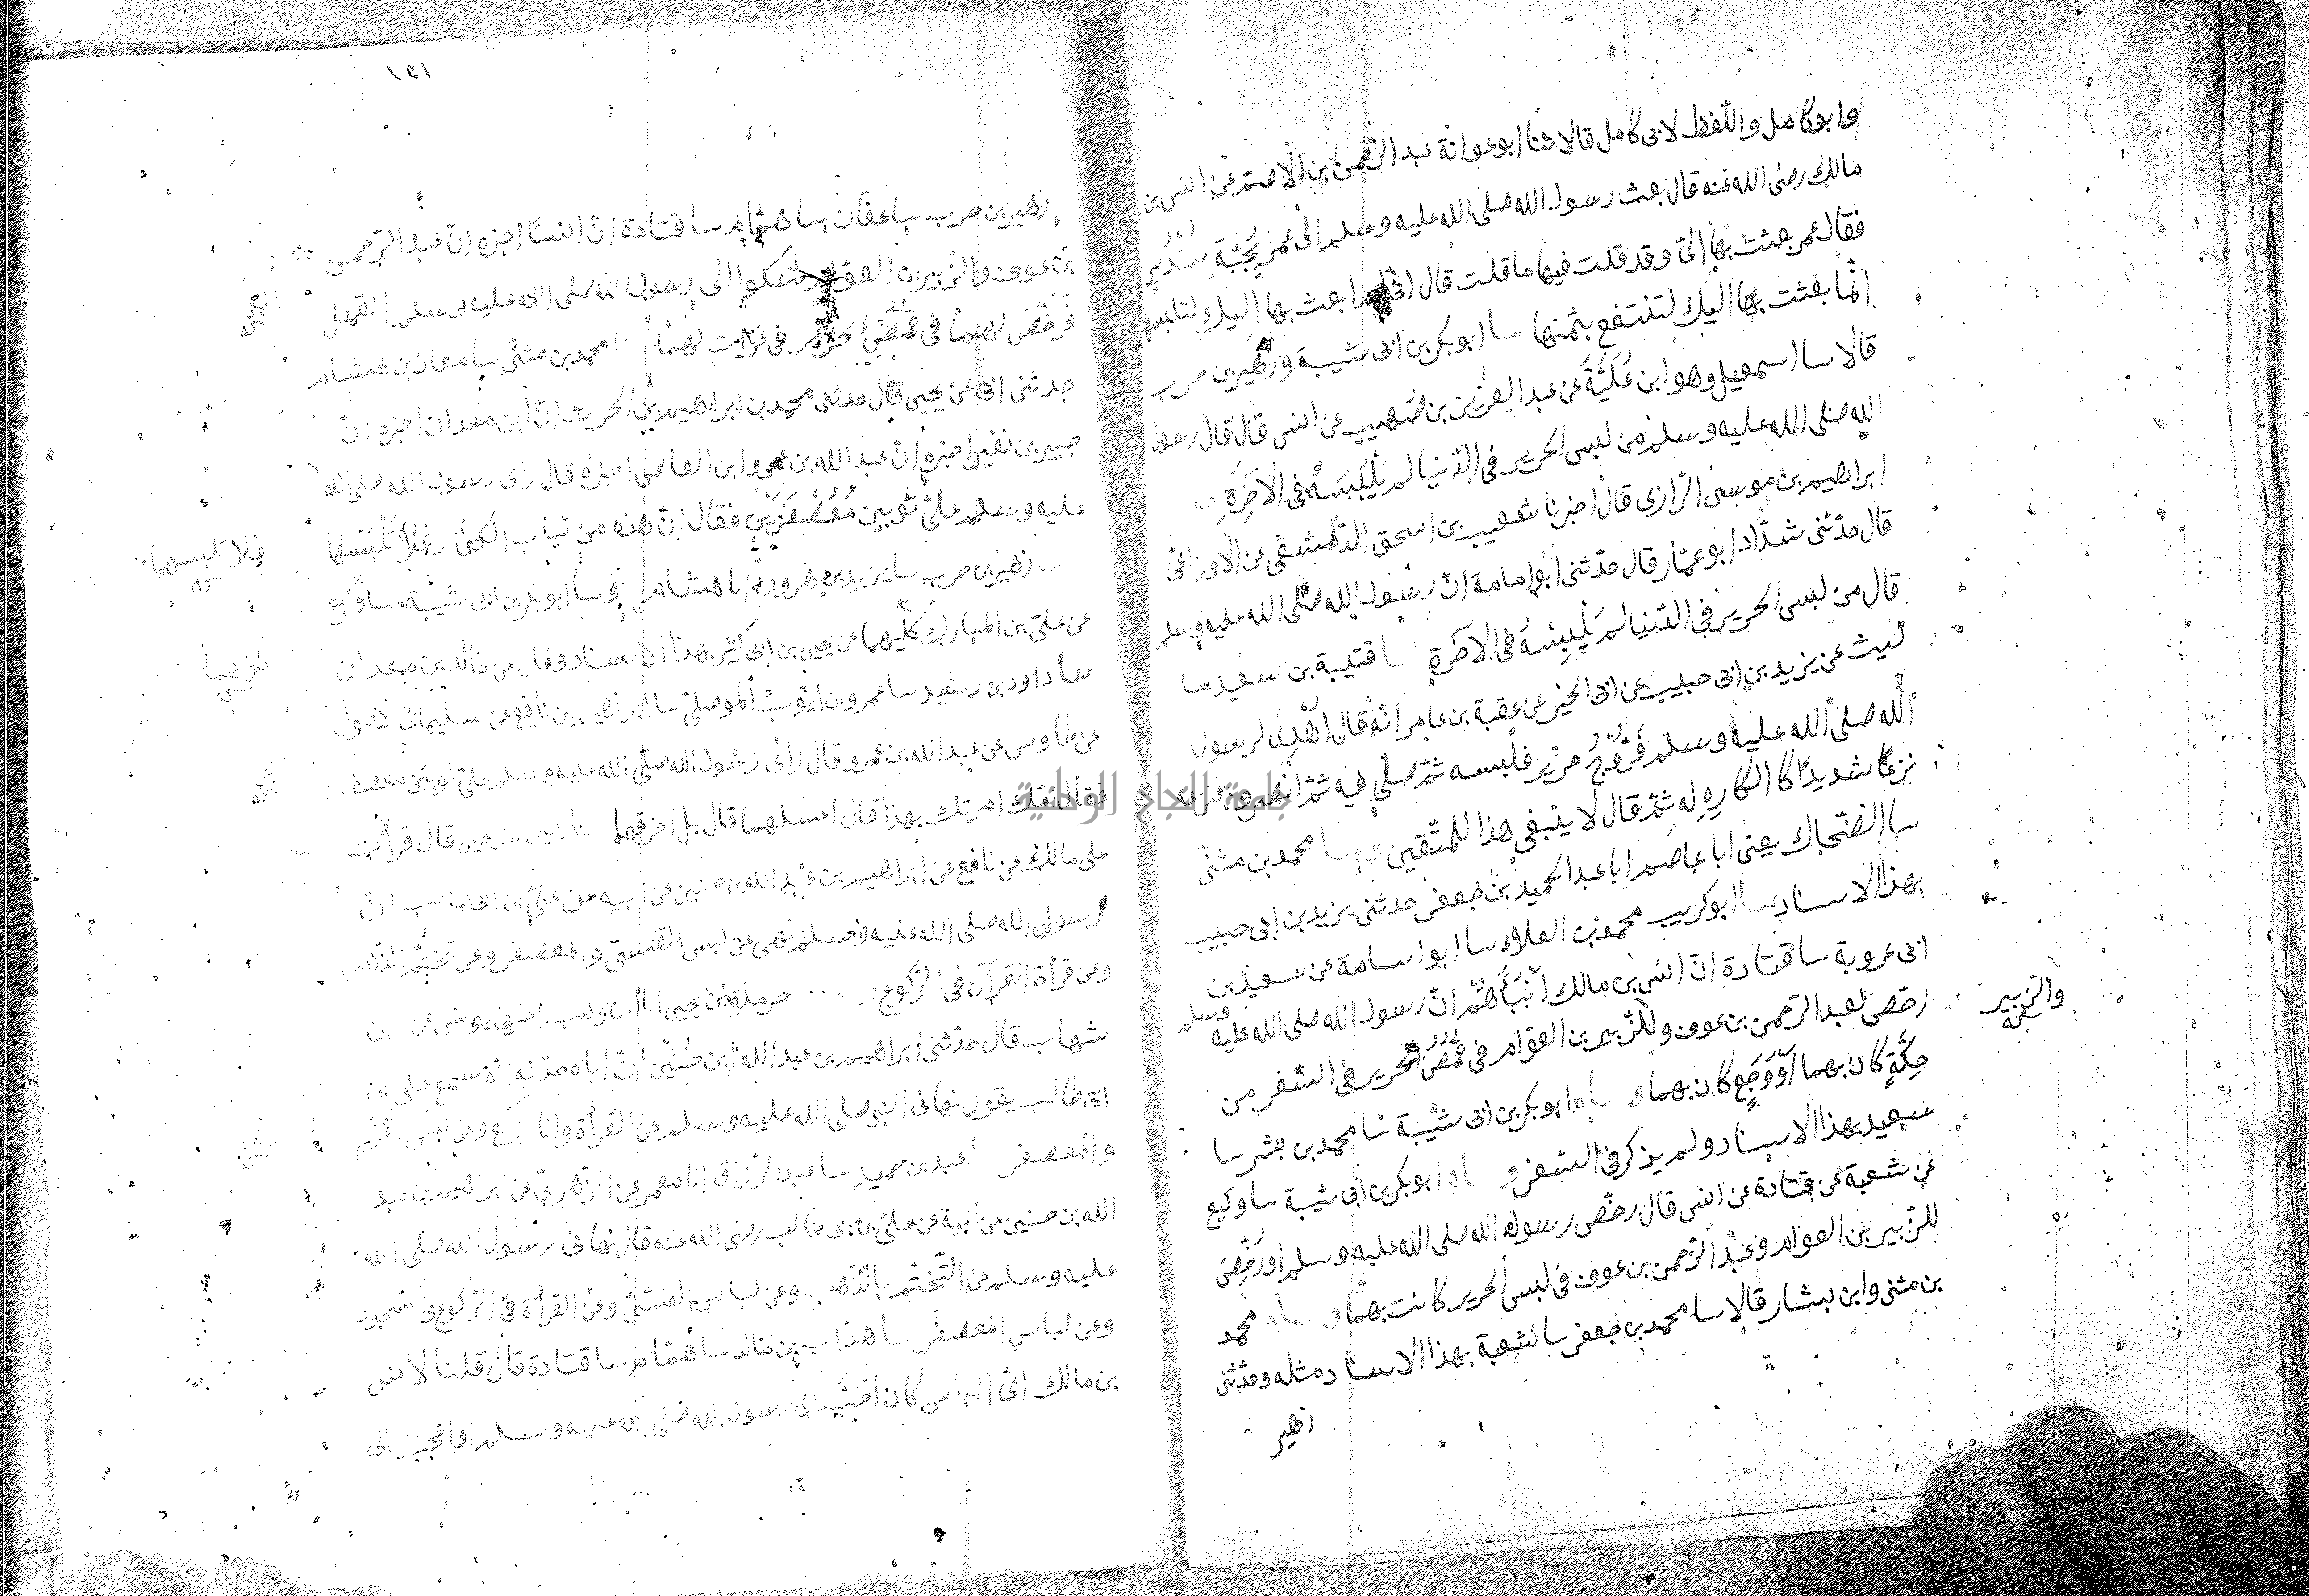 وابو كامل واللفظ لابى كامل قالا ثنا ابو عوانة عبد الرحمن بن الاصم عن انس بن
مالك رضى الله عنه قال بعث رسول الله صلى الله عليه وسلم الى عمر بِجُبَّةِ سُنْدُسٍ
فقال عمر بعثت بها الىّ وقد قلت فيها ما قلت قال انى لم ابعث بها اليك لتلبسها
انّما بعثت بها اليك لتنتفع بثمنها سا ابو بكر بن ابى شيبة وزهير بن حرب
قالا سا اسمعيل وهو ابن عُلَيَّةَ عن عبد العزيز بن صُهيب عن انس قال قال رسول
الله صلى الله عليه وسلم من لبس الحرير فى الدّنيا لم يَلْبَسْهُ فى الآخِرَةِ
ابراهيم بن موسى الرّازى قال اخبرنا شعيب بن اسحق الدّمشقى عن الاوزاعى
قال حدّثنى شدّاد ابو عمّار قال حدّثنى ابو امامة انّ رسول الله صلى الله عليه وسلم
قال من لبس الحرير فى الدّنيا لم يَلْبسْهُ فى الآخرة سا قتيبة بن سعيد سا
ليث عن يزيد بن ابى حبيب عن ابى الخير عن عقبة بن عامر انّه قال اُهْدِىَ لرسول
الله صلى الله عليه وسلم فَرُّوجُ حرير فلبسه ثمّ صلّى فيه ثمّ انصرف فنزعه
نزعًا شديدًا كالكارِهِ له ثمّ قال لا ينبغى هذا للمتّقين سا محمد بن مثنّى
سا الضّحاك يعنى ابا عاصم ابا عبد الحميد بن جعفر حدثنى يزيد بن ابى حبيب
بهذا الاسناد سا ابو كريب محمد بن العلاء سا ابو اسامة عن سعيد بن
ابى عروبة سا قتادة انّ انس بن مالك اَنْبَأَهُمْ انّ رسول الله صلى الله عليه وسلم
رخّص لعبد الرّحمن بن عوف وللزّبير بن العوّام فى قُمُصِ الحرير فى السّفر من
والزبير
نسخة
حِكَّةٍ كان بهما اَوْ وَجَعٍ كان بهما و ساه ابو بكر بن ابى شيبة سا محمد بن بشر سا
سعيد بهذا الاسناد ولم يذكر فى السفر و ساه ابو بكر بن ابى شيبة سا وكيع
عن شعبة عن قتادة عن انس قال رخّص رسول الله صلى الله عليه وسلم او رُخِّصَ
للزّبير بن العوام وعبد الرّحمن بن عوف فى لبس الحرير كانت بهما و ساه محمد
بن مثنى وابن بشار قالا سا محمد بن جعفر سا شعبة بهذا الاسناد مثله وحدّثنى
زهير
١٣١
زهير بن حرب سا عفّان سا همّام سا قتادة انّ انسًا اخبره انّ عبد الرّحمن
بن عوف والزّبير بن العوّام شكوا الى رسول الله صلى الله عليه وسلم القمل
فَرَخَّصَ لهما فى قُمُصِ الحرير فى غزاة لهما محمد بن مثنّى سا معاذ بن هشام
حدثنى ابى عن يحيى قال حدثنى محمد بن ابراهيم بن الحرث انّ ابن معدان اخبره انّ
جبير بن نفير اخبره انّ عبد الله بن عمرو ابن العاص اخبره قال راى رسول الله صلى الله
عليه وسلم علىّ ثوبين مُعَصْفَرَيْنِ فقال انّ هذه من ثياب الكفّار فلا تَلْبَسْها
فلا تلبسهما
زهير بن حرب سا يزيد بن هرون انا هشام و سا ابو بكر بن ابى شيبة سا وكيع
عن علىّ بن المبارك كليهما عن يحيى بن ابى كثير بهذا الاسناد وقال عن خالد بن معدان
سا داود بن رشيد سا عمرو بن ايّوب الموصلى سا ابراهيم بن نافع عن سليمان الاحول
عن طاوس عن عبد الله بن عمرو قال رأى رسول الله صلى الله عليه وسلم علىّ ثوبين معصفرين
فقال امّك امرتك بهذا قال اغسلهما قال بل احرقهما سا يحيى بن يحيى قال قرأت
على مالك عن نافع عن ابراهيم بن عبد الله بن حنين عن ابيه عن علىّ بن ابى طالب انّ
رسول الله صلى الله عليه وسلم نهى عن لبس القسّى والمعصفر وعن تختّم الذّهب
وعن قرأة القرآن فى الرّكوع حرملة بن يحيى انا ابن وهب اخبرنى يونس عن ابن
شهاب قال حدّثنى ابراهيم بن عبد الله ابن حُنَيْنٍ انّ اباه حدّثه انّه سمع علىّ بن
ابى طالب يقول نهانى النبى صلى الله عليه وسلم عن القرأة وانا راكع وعن لبس
والمعصفر عبد بن حميد سا عبد الرّزاق انا معمر عن الزّهرىّ عن ابراهيم بن عبد
الله بن حنين عن ابيه عن علىّ بن ابى طالب رضى الله عنه قال نهانى رسول الله صلى الله
عليه وسلم عن التّختّم بالذّهب وعن لباس القسّىّ وعن القرأة فى الرّكوع والسّجود
وعن لباس المعصفر سا هدّاب بن خالد سا همّام سا قتادة قال قلنا لانس
بن مالك اىّ اللباس كان احَبَّ الى رسول الله صلى الله عليه وسلم او اعجب الى